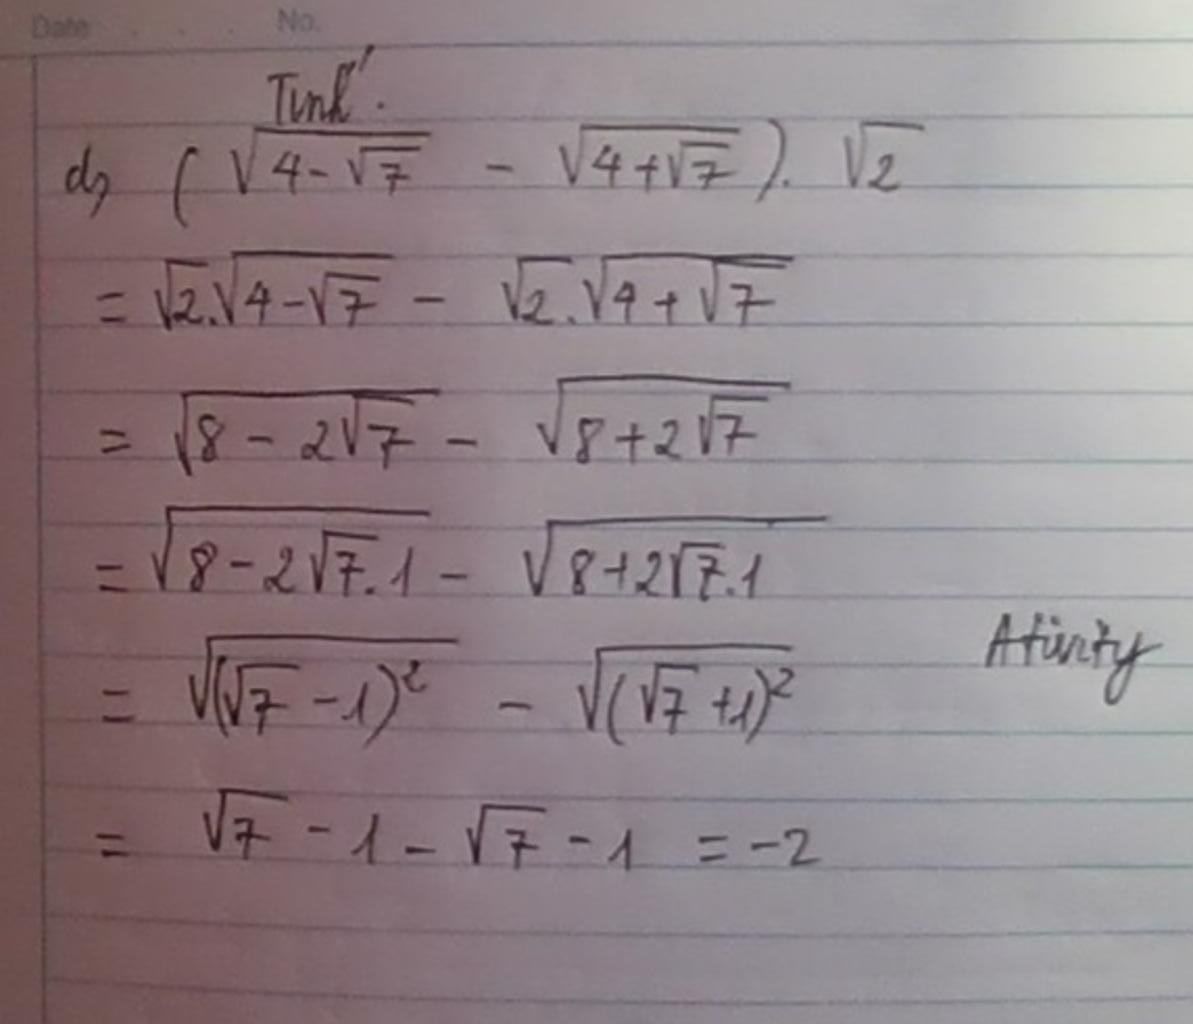 Date . . . . No.
Tính.
d, (√(4-√7) - √(4+√7)). √2
= √2.√(4-√7) - √2.√(4+√7)
= √(8-2√7) - √(8+2√7)
= √(8-2√7.1) - √(8+2√7.1)
= √((√7-1)²) - √((√7+1)²)
= √7 - 1 - √7 - 1 = -2